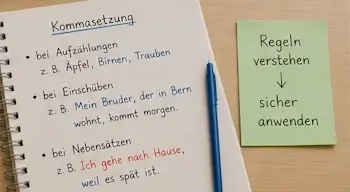 Kommasetzung
• bei Aufzählungen
z. B. Äpfel, Birnen, Trauben
• bei Einschüben
z. B. Mein Bruder, der in Bern
wohnt, kommt morgen.
• bei Nebensätzen
z. B. Ich gehe nach Hause,
weil es spät ist.
Regeln
verstehen
↓
sicher
anwenden